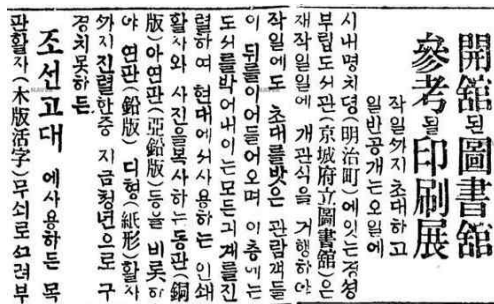 開舘된圖書舘
參考될印刷展
작일까지초대하고
일반공개는오일에
시내명치뎡(明治町)에잇는경성
부립도서관(京城府立圖書舘)은
재작일일에 개관식을 거행하야
작일에도 초대를밧은 관람객들
이 뒤를이어들어오며 이층에는
도서를박어내이는모든긔계를진
렬하여 현대에서사용하는 인쇄
활자와 사진을복사하는동판(銅
版)아연판(亞鉛版)등을 비롯하
야 연판(鉛版) 디형(紙形)활사
까지진렬한중 지금청년으로 구
경치못하든
조선고대 에사용하든 목
판활자(木版活字)무쇠로